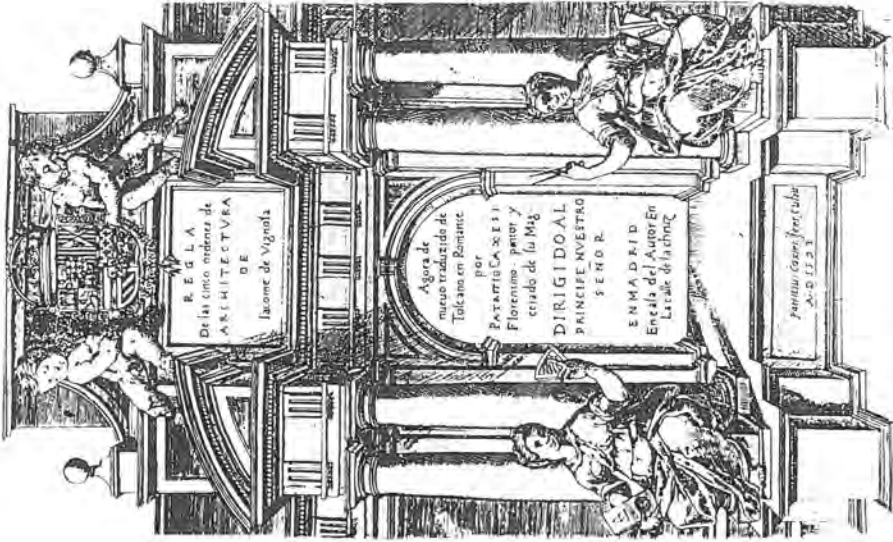 REGLA
De las cinco ordenes de
ARCHITECTVRA
DE
Iacome de Vignola
Agora de
nueuo traduzido de
Toscano en Romance
por
PATRITIO CAXESI
Florentino, pintor y
criado de su Mag
DIRIGIDO AL
PRINCIPE NVESTRO
SEÑOR
EN MADRID
En casa del Autor En
La calle de la chruz
A D 1593